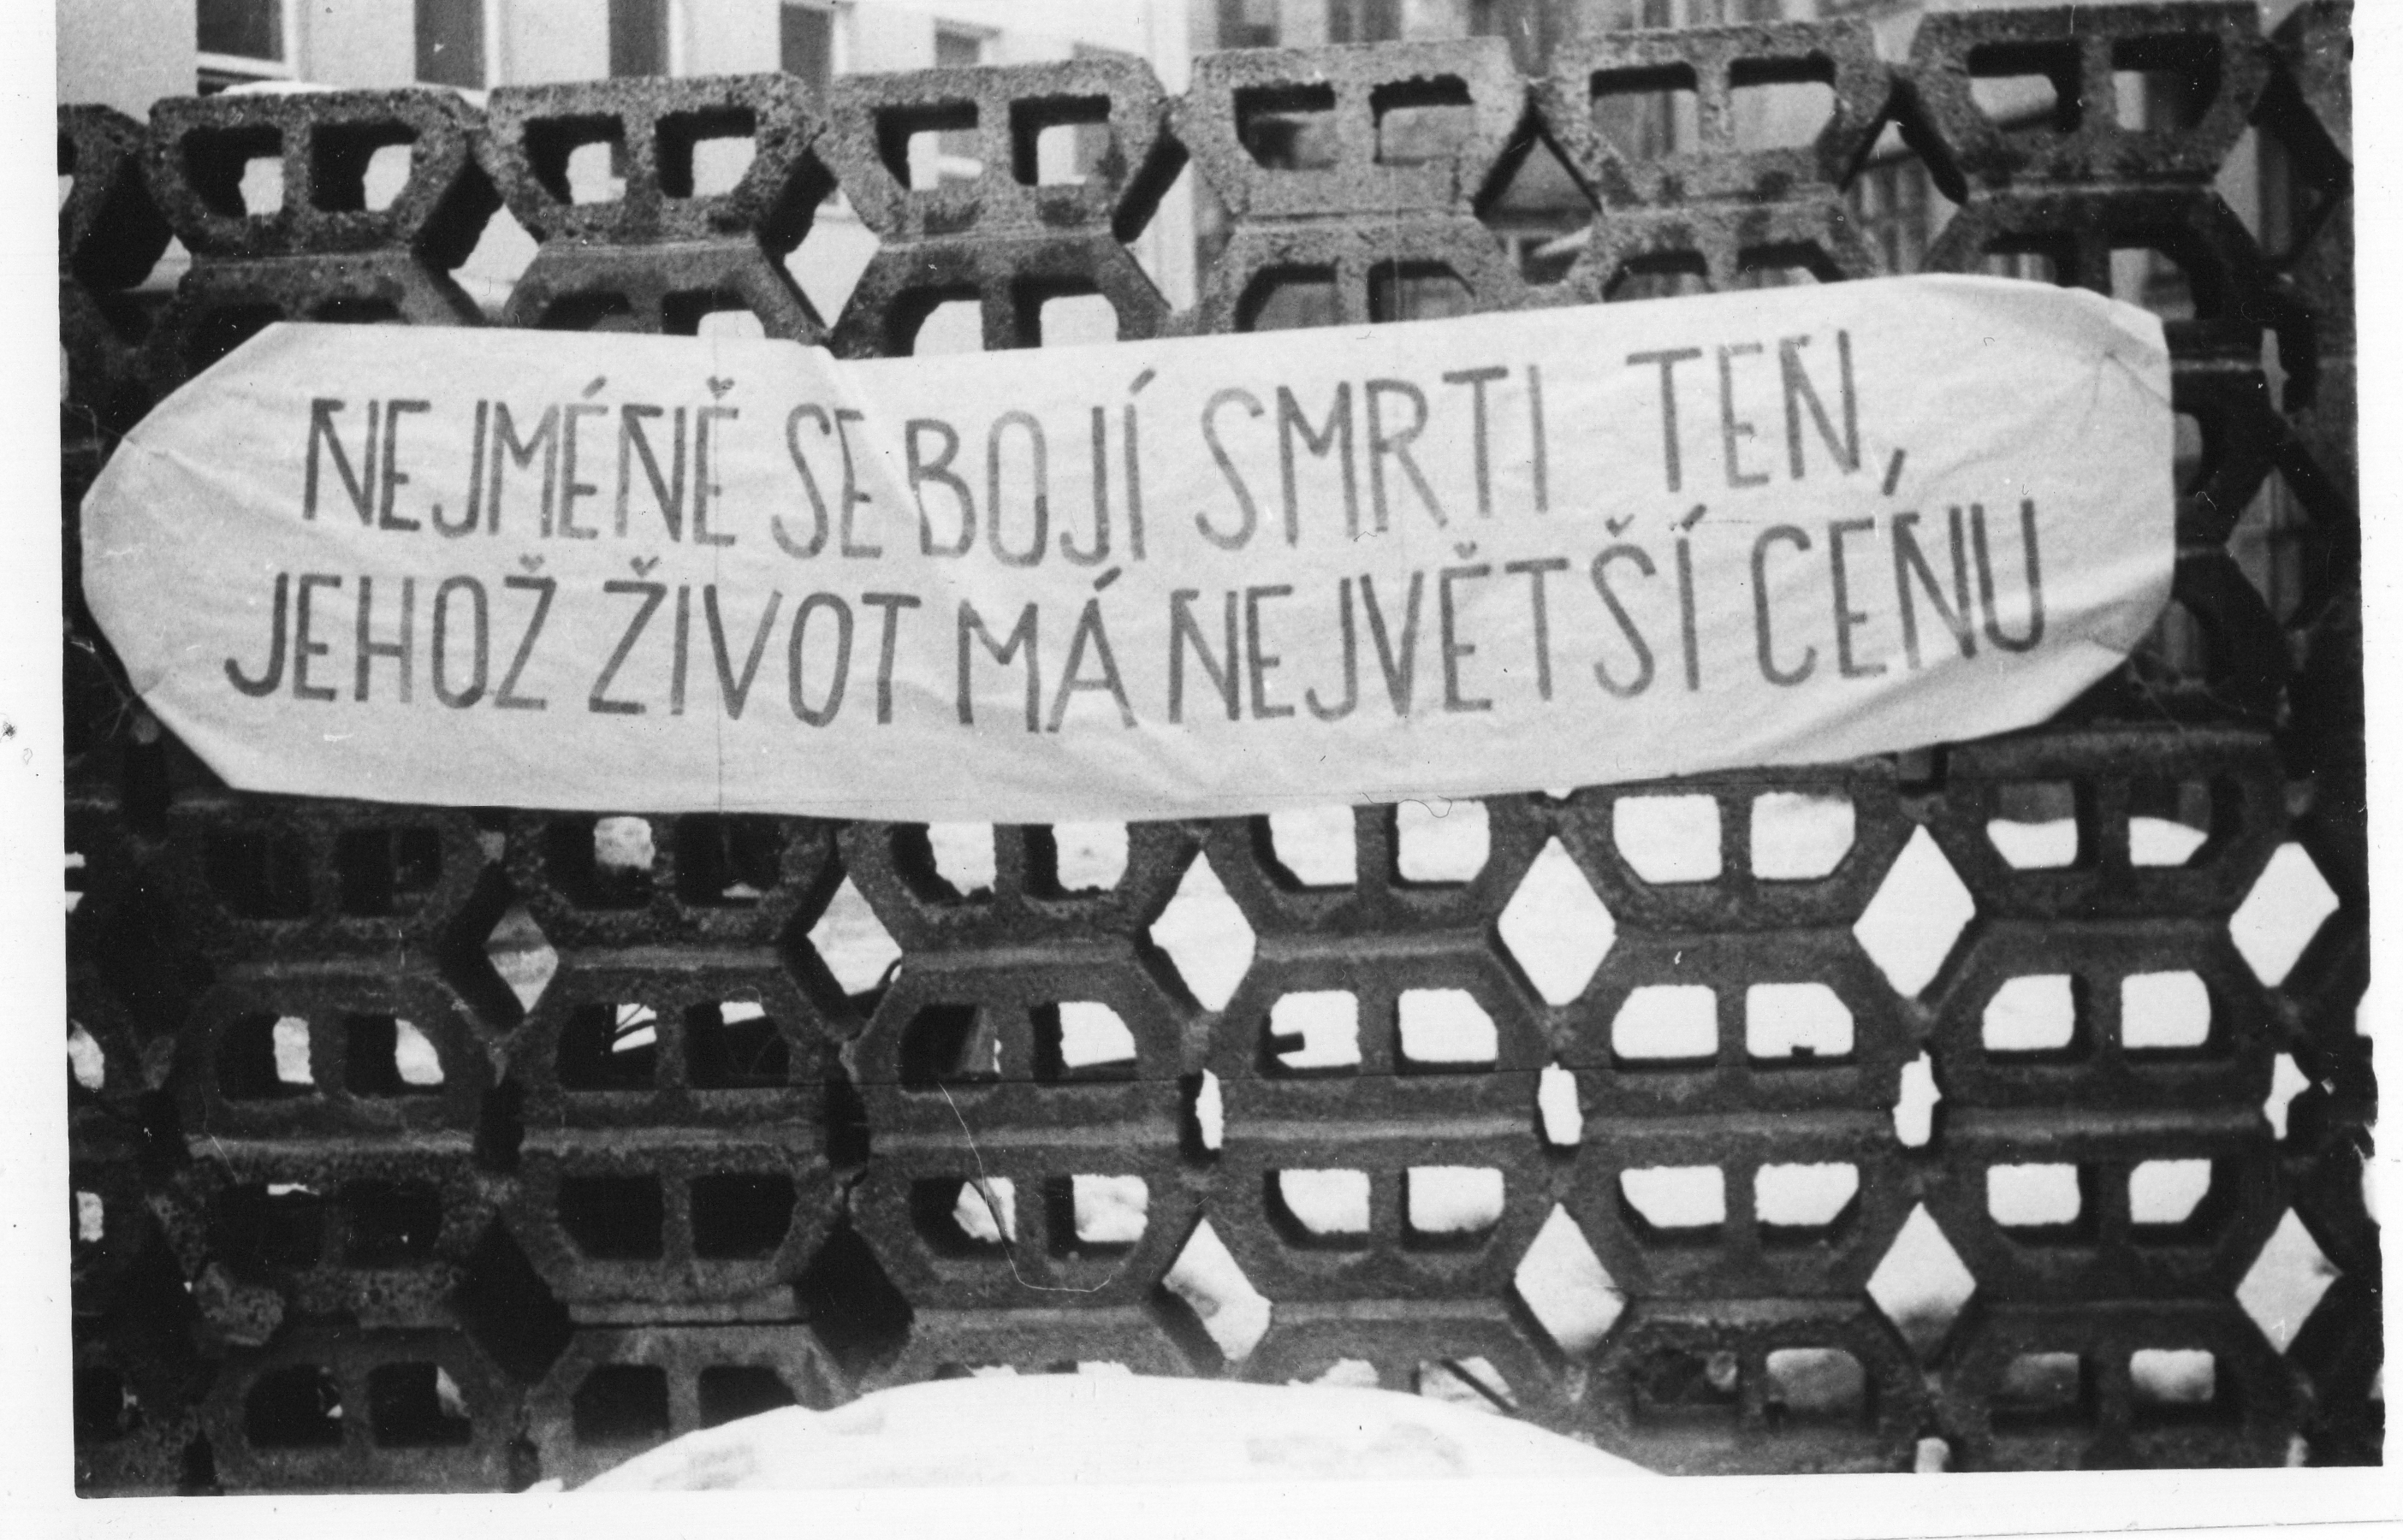 NEJMÉNĚ SE BOJÍ SMRTI TEN,
JEHOŽ ŽIVOT MÁ NEJVĚTŠÍ CENU